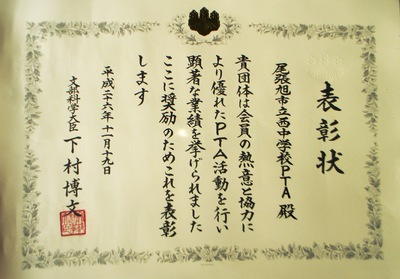 表彰状
尾張旭市立西中学校PTA 殿
貴団体は会員の熱意と協力に
より優れたPTA活動を行い
顕著な業績を挙げられました
ここに奨励のためこれを表彰
します
平成二十六年十一月十九日
文部科学大臣 下村博文